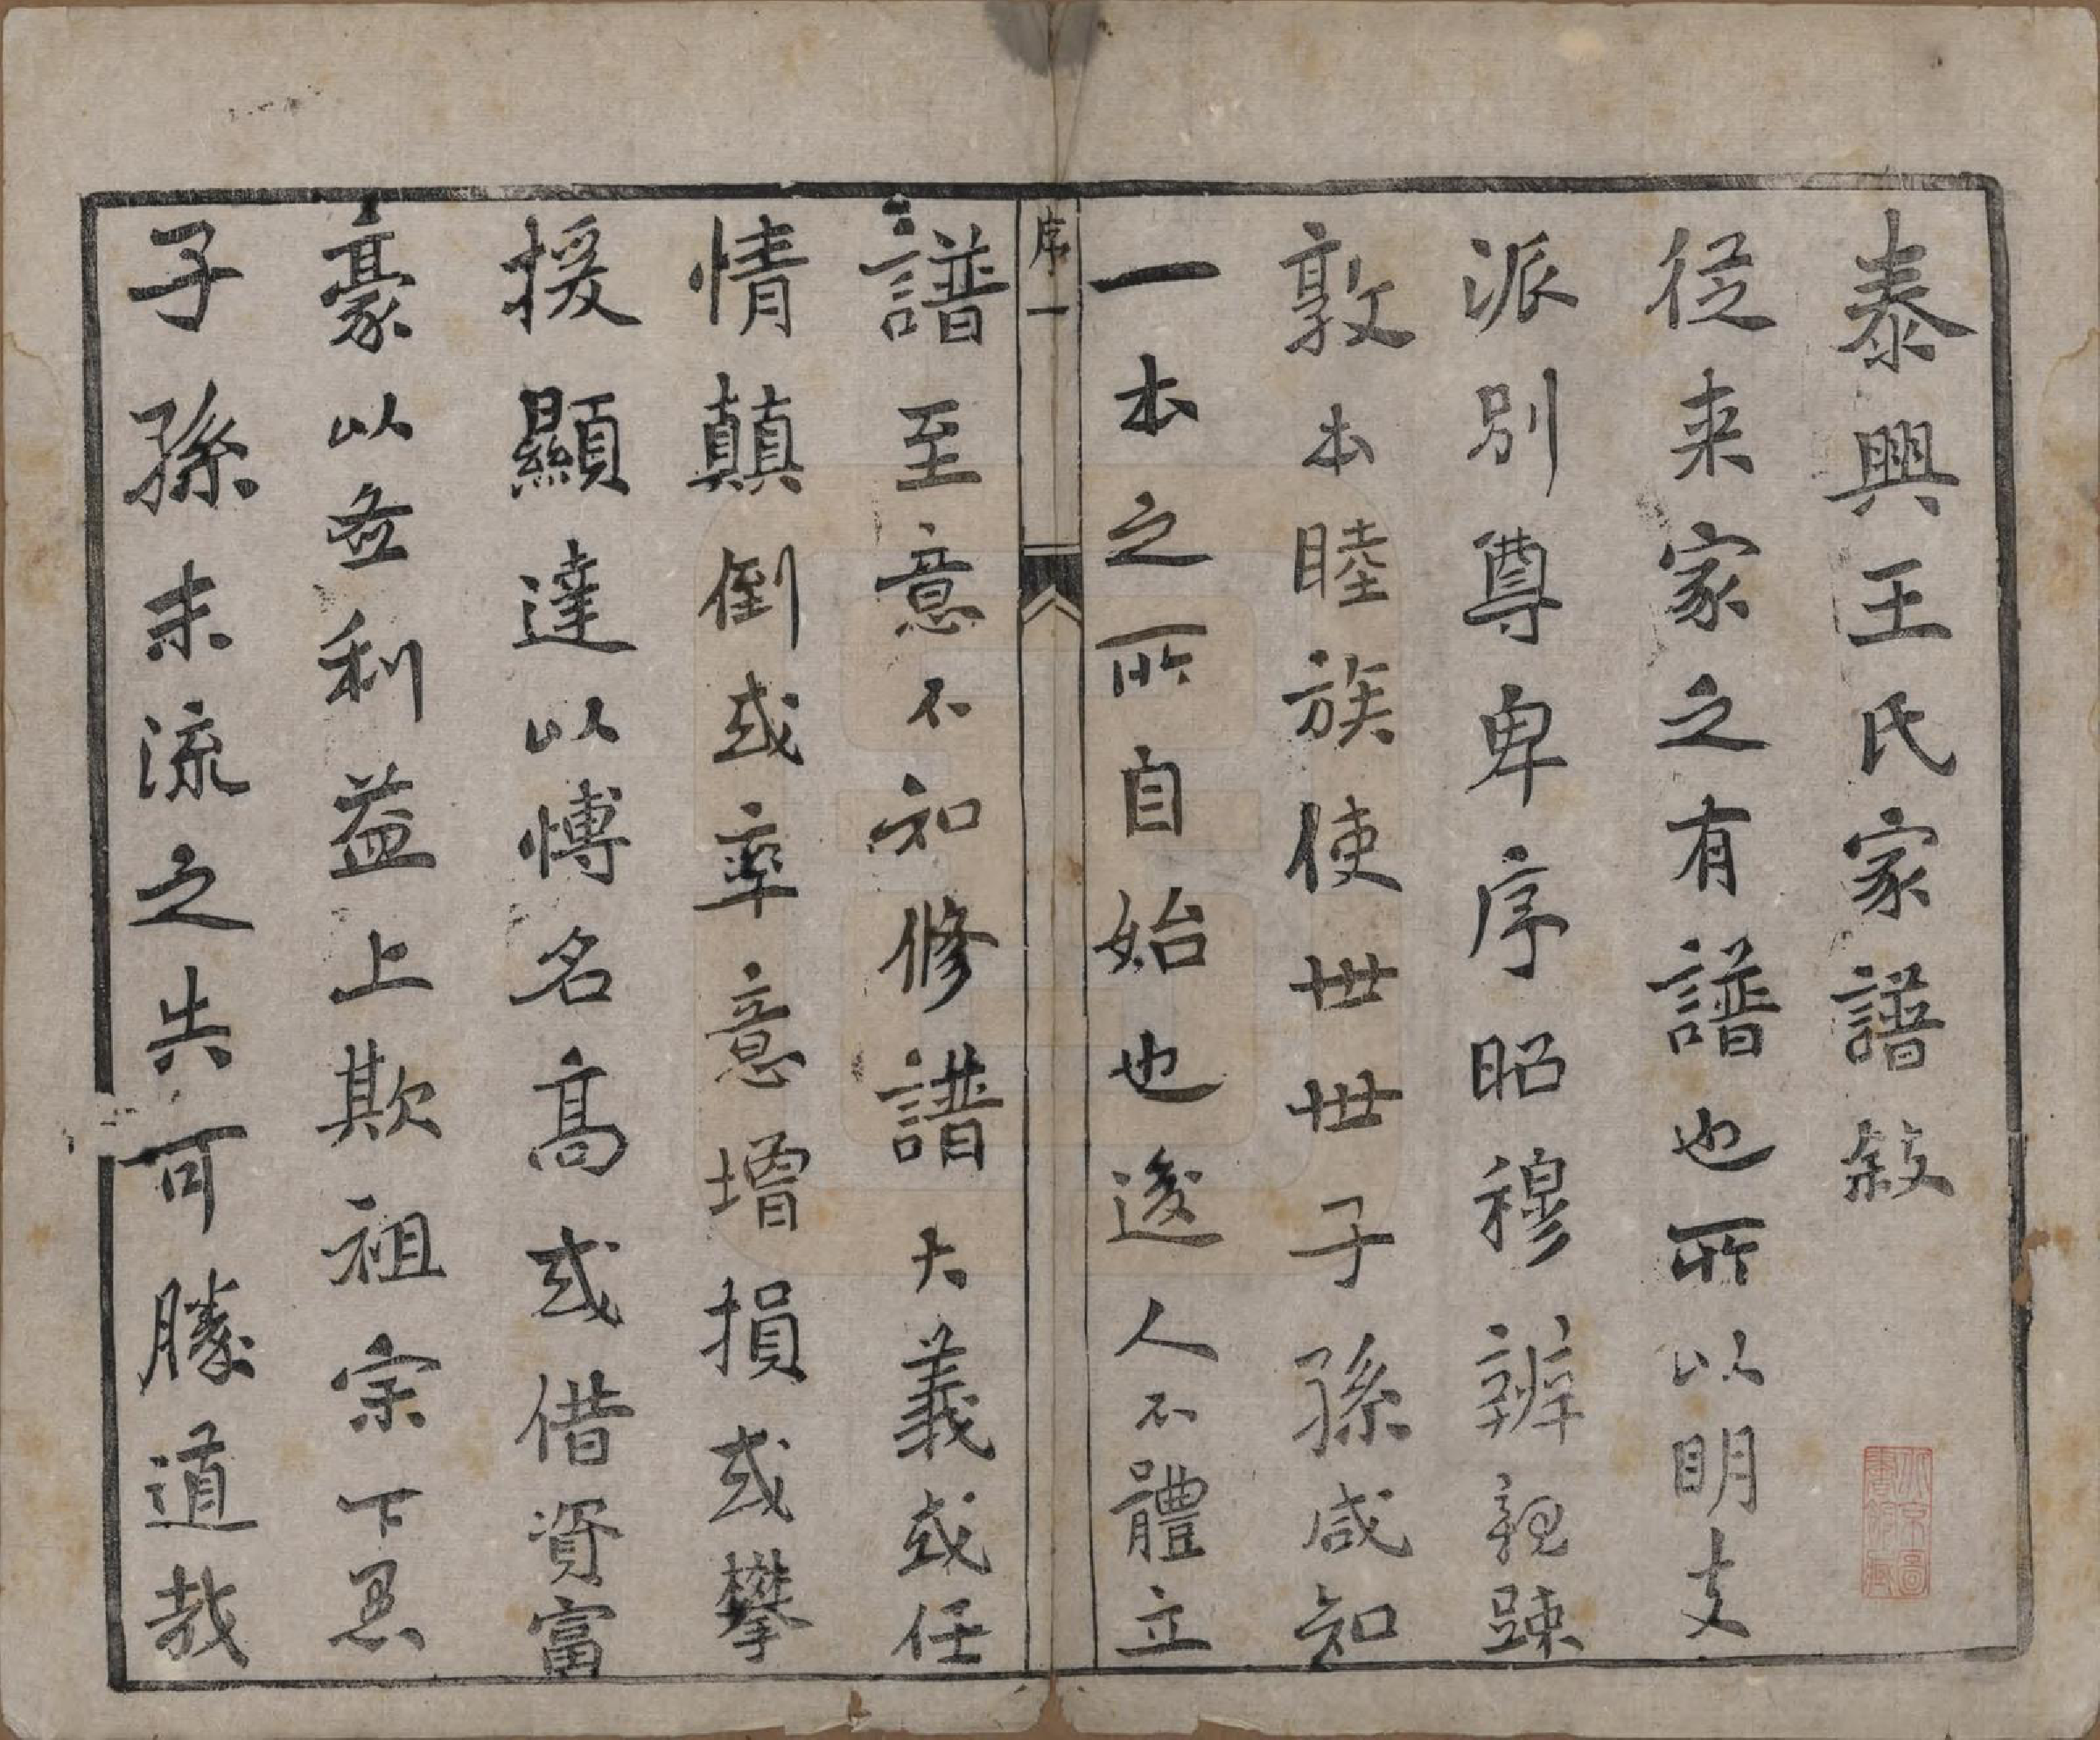 泰興王氏家譜敍
從来家之有譜也所以明支
派别尊卑序昭穆辨親踈
敦本睦族使世世子孫咸知
一本之所自始也後人不體立
序一
譜至意不知修譜大義或任
情顛倒或率意增損或攀
援顯達以博名高或借資富
豪以𠀤利益上欺祖宗下惡
子孫末流之失可勝道哉
北京圖書館藏